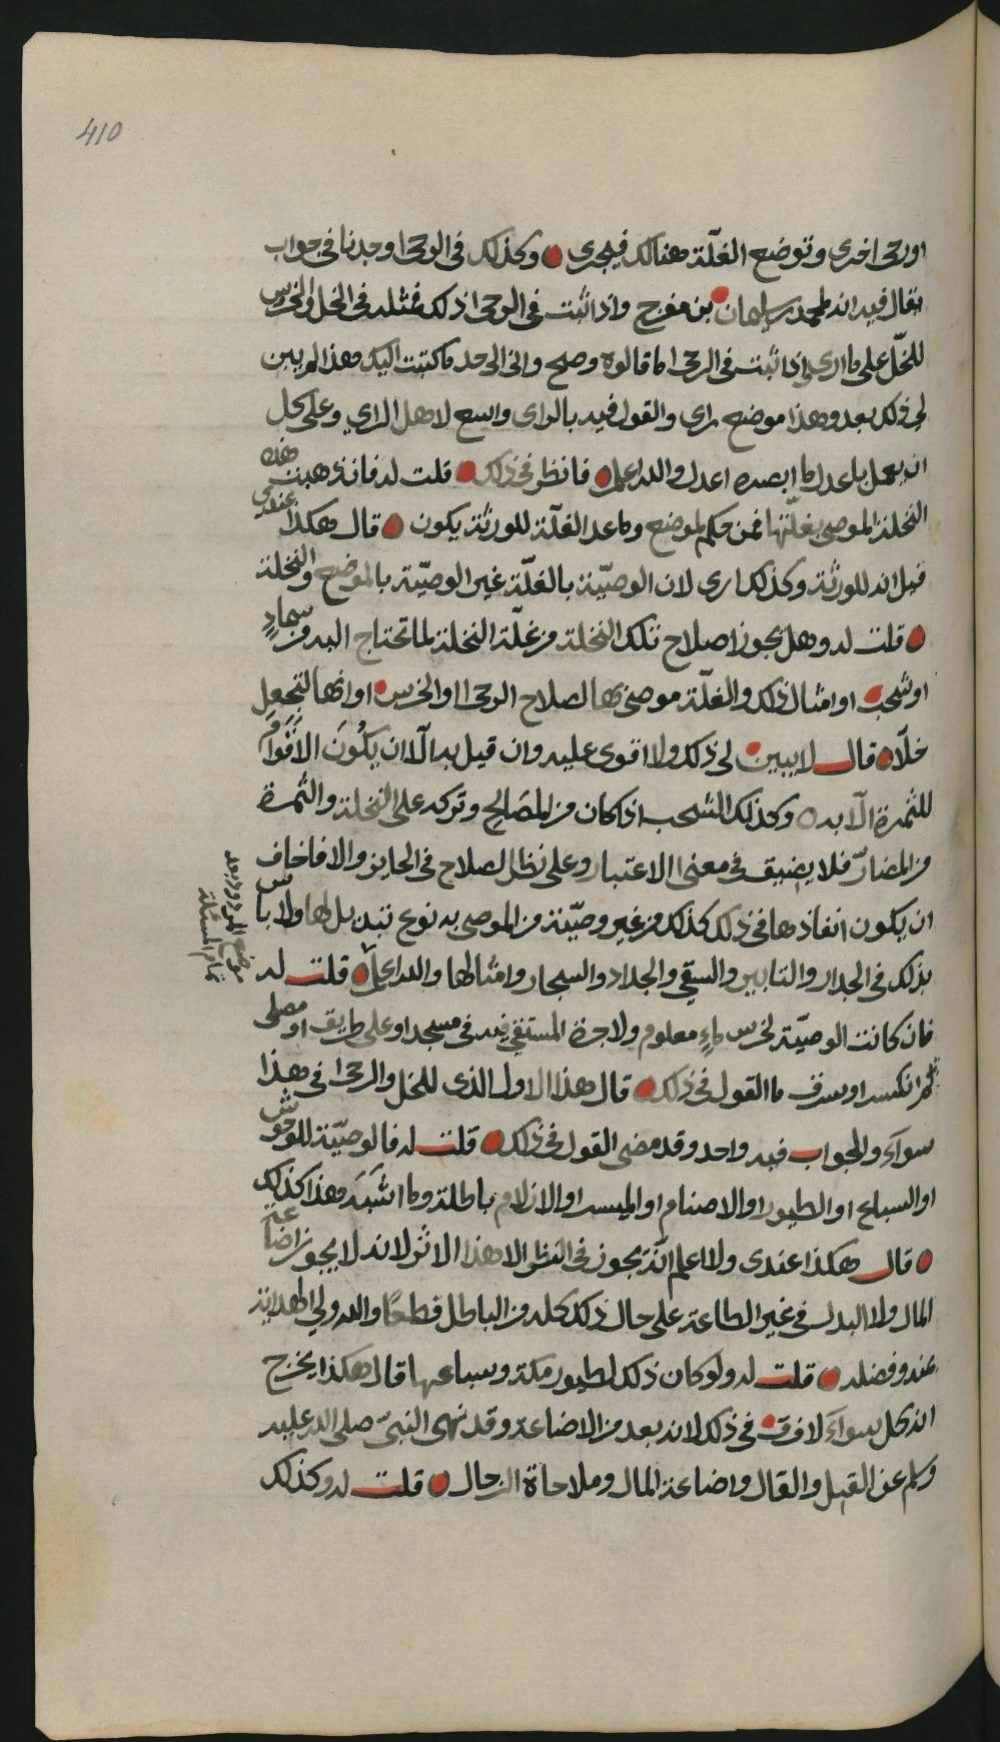 410
او رحى اخرى وتوضع الغلّة هنالك فيجرى وكذلك فى الوحى اوجدنا فى جواب
يقال فيه انه لمحمد بن سليمان بن مفرج واذا ثبت فى الرحى اذلك فمثله فى الخل والخرس
للخلّ على ما ارى اذا ثبت فى الرحى ما قالوه وصح وانى الى حد ما كتبت اليك هذا لم يبين
لى ذلك بعد وهذا موضع راى والقول فيه بالراى واسع لاهل الراي وعلى كل
ان يعمل باعدل ما ابصره اعدل والله اعلم فانظر فى ذلك قلت له فان ذهبت هذه
النخلة الموصى بغلّتها فمن حكم لموضع وما عد الغلّة للورثة يكون قال هكذا عندى
قيل انه للورثة وكذلك ارى لان الوصيّة بالغلّة غير الوصيّة بالموضع والنخلة
قلت له وهل يجوز اصلاح تلك النخلة من غلّة النخلة لما تحتاج اليه من سمادٍ
او شحب او امثال ذلك والغلّة موصى بها لصلاح الرحى او الخرس او انها لتجعل
خلّا قال لا يبين لى ذلك ولا اقوى عليه وان قيل به الّا ان يكُونَ الا قَوَامَ
للثمرة الّا به وكذلك الشحب اذا كان من المصَالح وتركه على النخلة والثمرة
من المضارّ فلا يضيق فى معنى الاعتبار وعلى نظر الصلاح فى الجايز والا فاخاف
ان يكون انفاذها فى ذلك كذلك من غير وصيّة من الموصى به نوع تبديل لها ولا باس
بذلك فى الجدار والتابير والسقي والجداد والسجار وامثالها والله اعلم قلت له
موضع المردود بعد
تمام المسئلة
فان كانت الوصيّة لخرس ماءٍ معلوم ولاجرة المستقي فيه فى مسجد او على طريق او مصلى
ثم انكسر او سرق ما القول فى ذلك قال هذا الاول الذى للخل والرحى فى هذا
سوآء والجواب فيه واحد وقد مضى القول فى ذلك قلت له فالوصيّة للوحوش
او السباع او الطيور او الاصنام او الميسر او الازلام باطلة وما اشبَهَ هذا كذلك
قال هكذا عندى ولا اعلم انّه يجوز فى النظر الا هذا الا ثر لانه لا يجوز اضاعة
المال ولا البدل فى غير الطاعة على حال ذلك كله من الباطل قطعًا والله ولي الهداية
بمنه وفضله قلت له ولو كان ذلك لطيور مكة وسباعها قال هكذا يخرج
انه كل سوآءَ لا فرق فى ذلك لانه بعد من الاضاعة وقد نهى النبىّ صلى الله عليه
وسلم عن القيل والقال واضاعة المال وملاحاة الرجال قلت له وكذلك